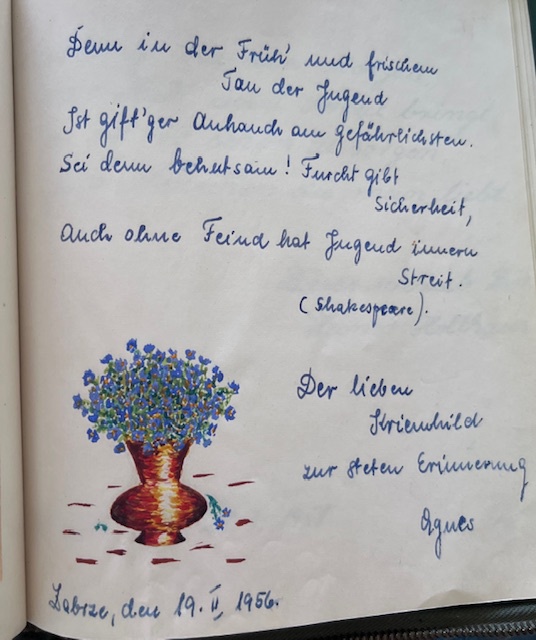 Denn in der Früh' und frischem
Tau der Jugend
Ist gift'ger Anhauch am gefährlichsten.
Sei denn behutsam! Furcht gibt
Sicherheit,
Auch ohne Feind hat Jugend innern
Streit.
(Shakespeare).
Der lieben
Kriemhild
zur steten Erinnerung
Agnes
Zabrze, den 19. II, 1956.